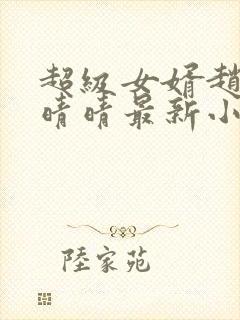 超級女婿趙
晴晴最新小
陸家苑